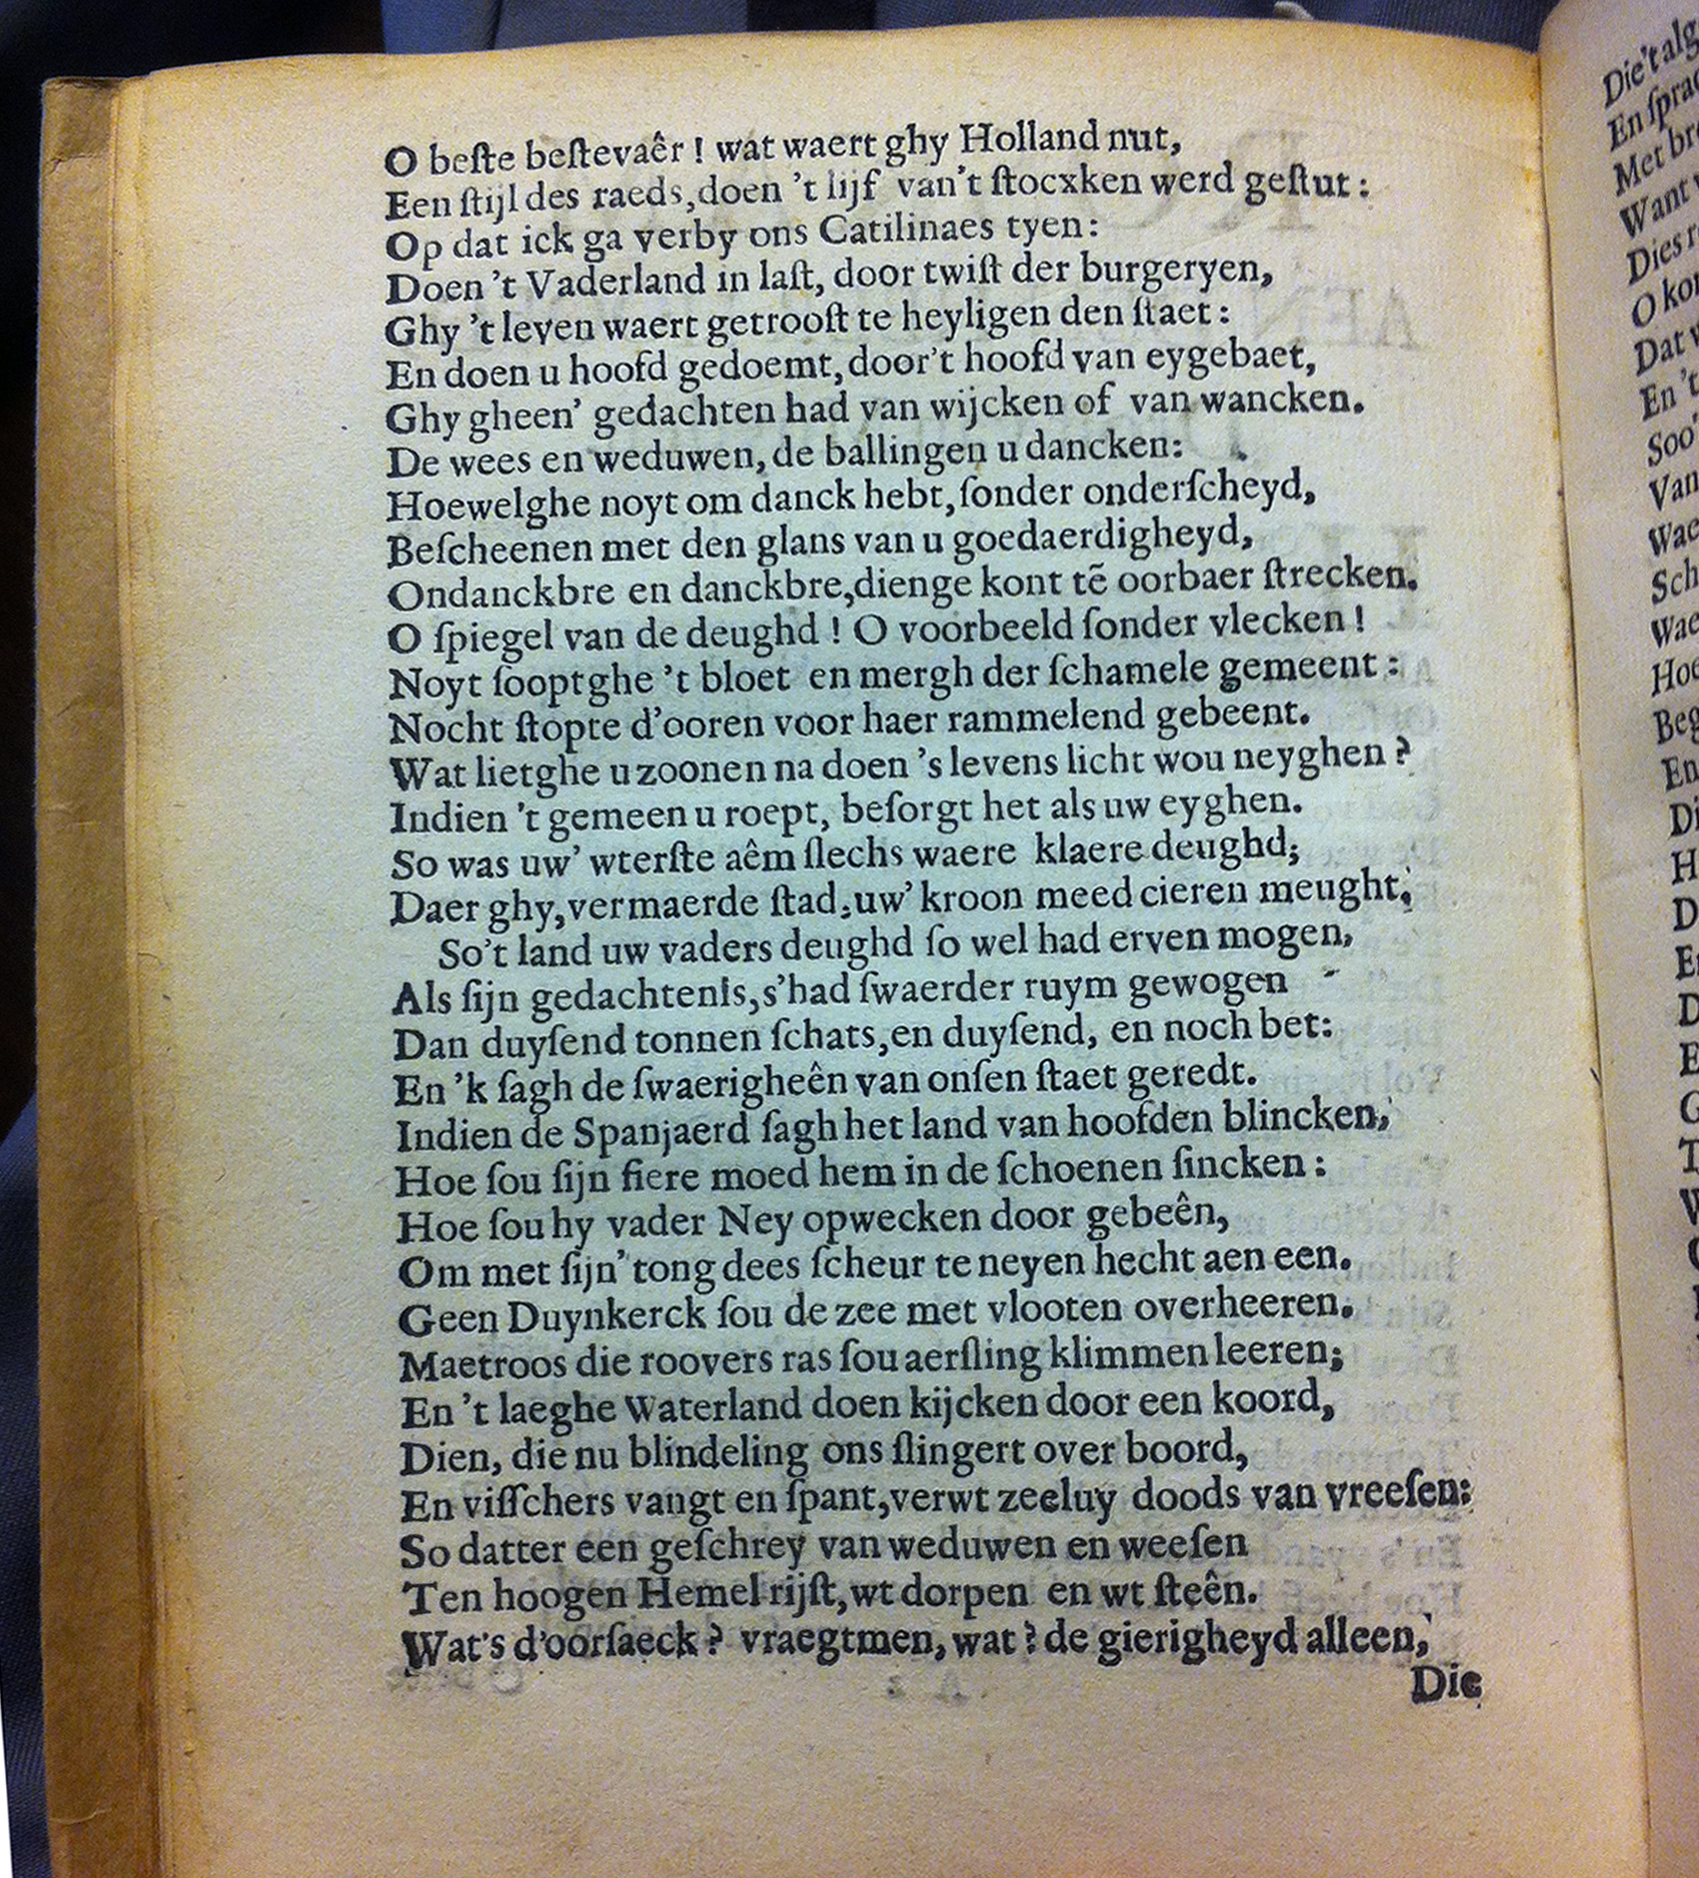 O beſte beſtevaêr! wat waert ghy Holland nut,
Een ſtijl des raeds, doen 't lijf van't ſtocxken werd geſtut:
Op dat ick ga verby ons Catilinaes tyen:
Doen 't Vaderland in laſt, door twiſt der burgeryen,
Ghy 't leven waert getrooſt te heyligen den ſtaet:
En doen u hoofd gedoemt, door't hoofd van eygebaet,
Ghy gheen' gedachten had van wijcken of van wancken.
De wees en weduwen, de ballingen u dancken:
Hoewelghe noyt om danck hebt, ſonder onderſcheyd,
Beſcheenen met den glans van u goedaerdigheyd,
Ondanckbre en danckbre, dienge kont tẽ oorbaer ſtrecken.
O ſpiegel van de deughd! O voorbeeld ſonder vlecken!
Noyt ſooptghe 't bloet en mergh der ſchamele gemeent:
Nocht ſtopte d'ooren voor haer rammelend gebeent.
Wat lietghe u zoonen na doen 's levens licht wou neyghen?
Indien 't gemeen u roept, beſorgt het als uw eyghen.
So was uw' wterſte aêm ſlechs waere klaere deughd;
Daer ghy, vermaerde ſtad, uw' kroon meed cieren meught.
So't land uw vaders deughd ſo wel had erven mogen,
Als ſijn gedachtenis, s'had ſwaerder ruym gewogen
Dan duyſend tonnen ſchats, en duyſend, en noch bet:
En 'k ſagh de ſwaerigheên van onſen ſtaet geredt.
Indien de Spanjaerd ſagh het land van hoofden blincken,
Hoe ſou ſijn fiere moed hem in de ſchoenen ſincken:
Hoe ſou hy vader Ney opwecken door gebeên,
Om met ſijn' tong dees ſcheur te neyen hecht aen een.
Geen Duynkerck ſou de zee met vlooten overheeren.
Maetroos die roovers ras ſou aerſling klimmen leeren;
En 't laeghe Waterland doen kijcken door een koord,
Dien, die nu blindeling ons ſlingert over boord,
En viſſchers vangt en ſpant, verwt zeeluy doods van vreeſen:
So datter een geſchrey van weduwen en weeſen
Ten hoogen Hemel rijſt, wt dorpen en wt ſteên.
Wat's d'oorſaeck? vraegtmen, wat? de gierigheyd alleen,
Die
Die't alg
En ſprac
Met bre
Want
Dies
O kon
Dat
En 't
Soo
Van
Wae
Sch
Wae
Hoe
Beg
En